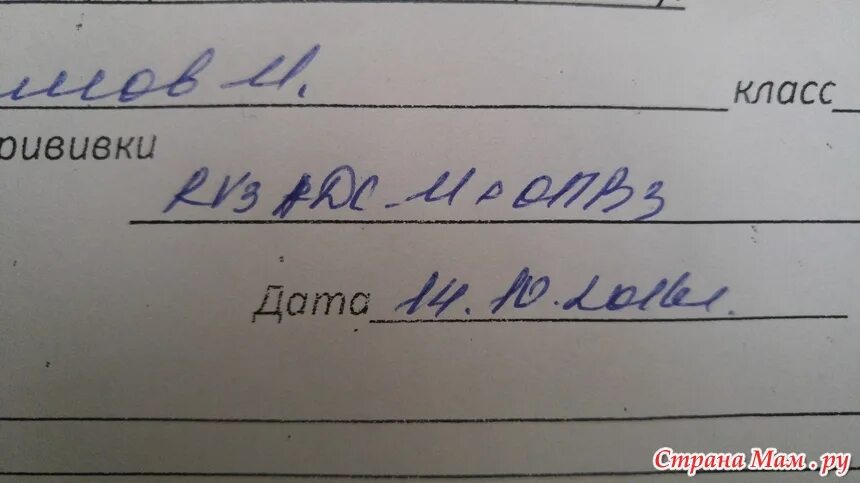 мов М. класс
рививки
RV3 АДС-М + ОПВ3
Дата 14.10.2016г.
Страна Мам.ру